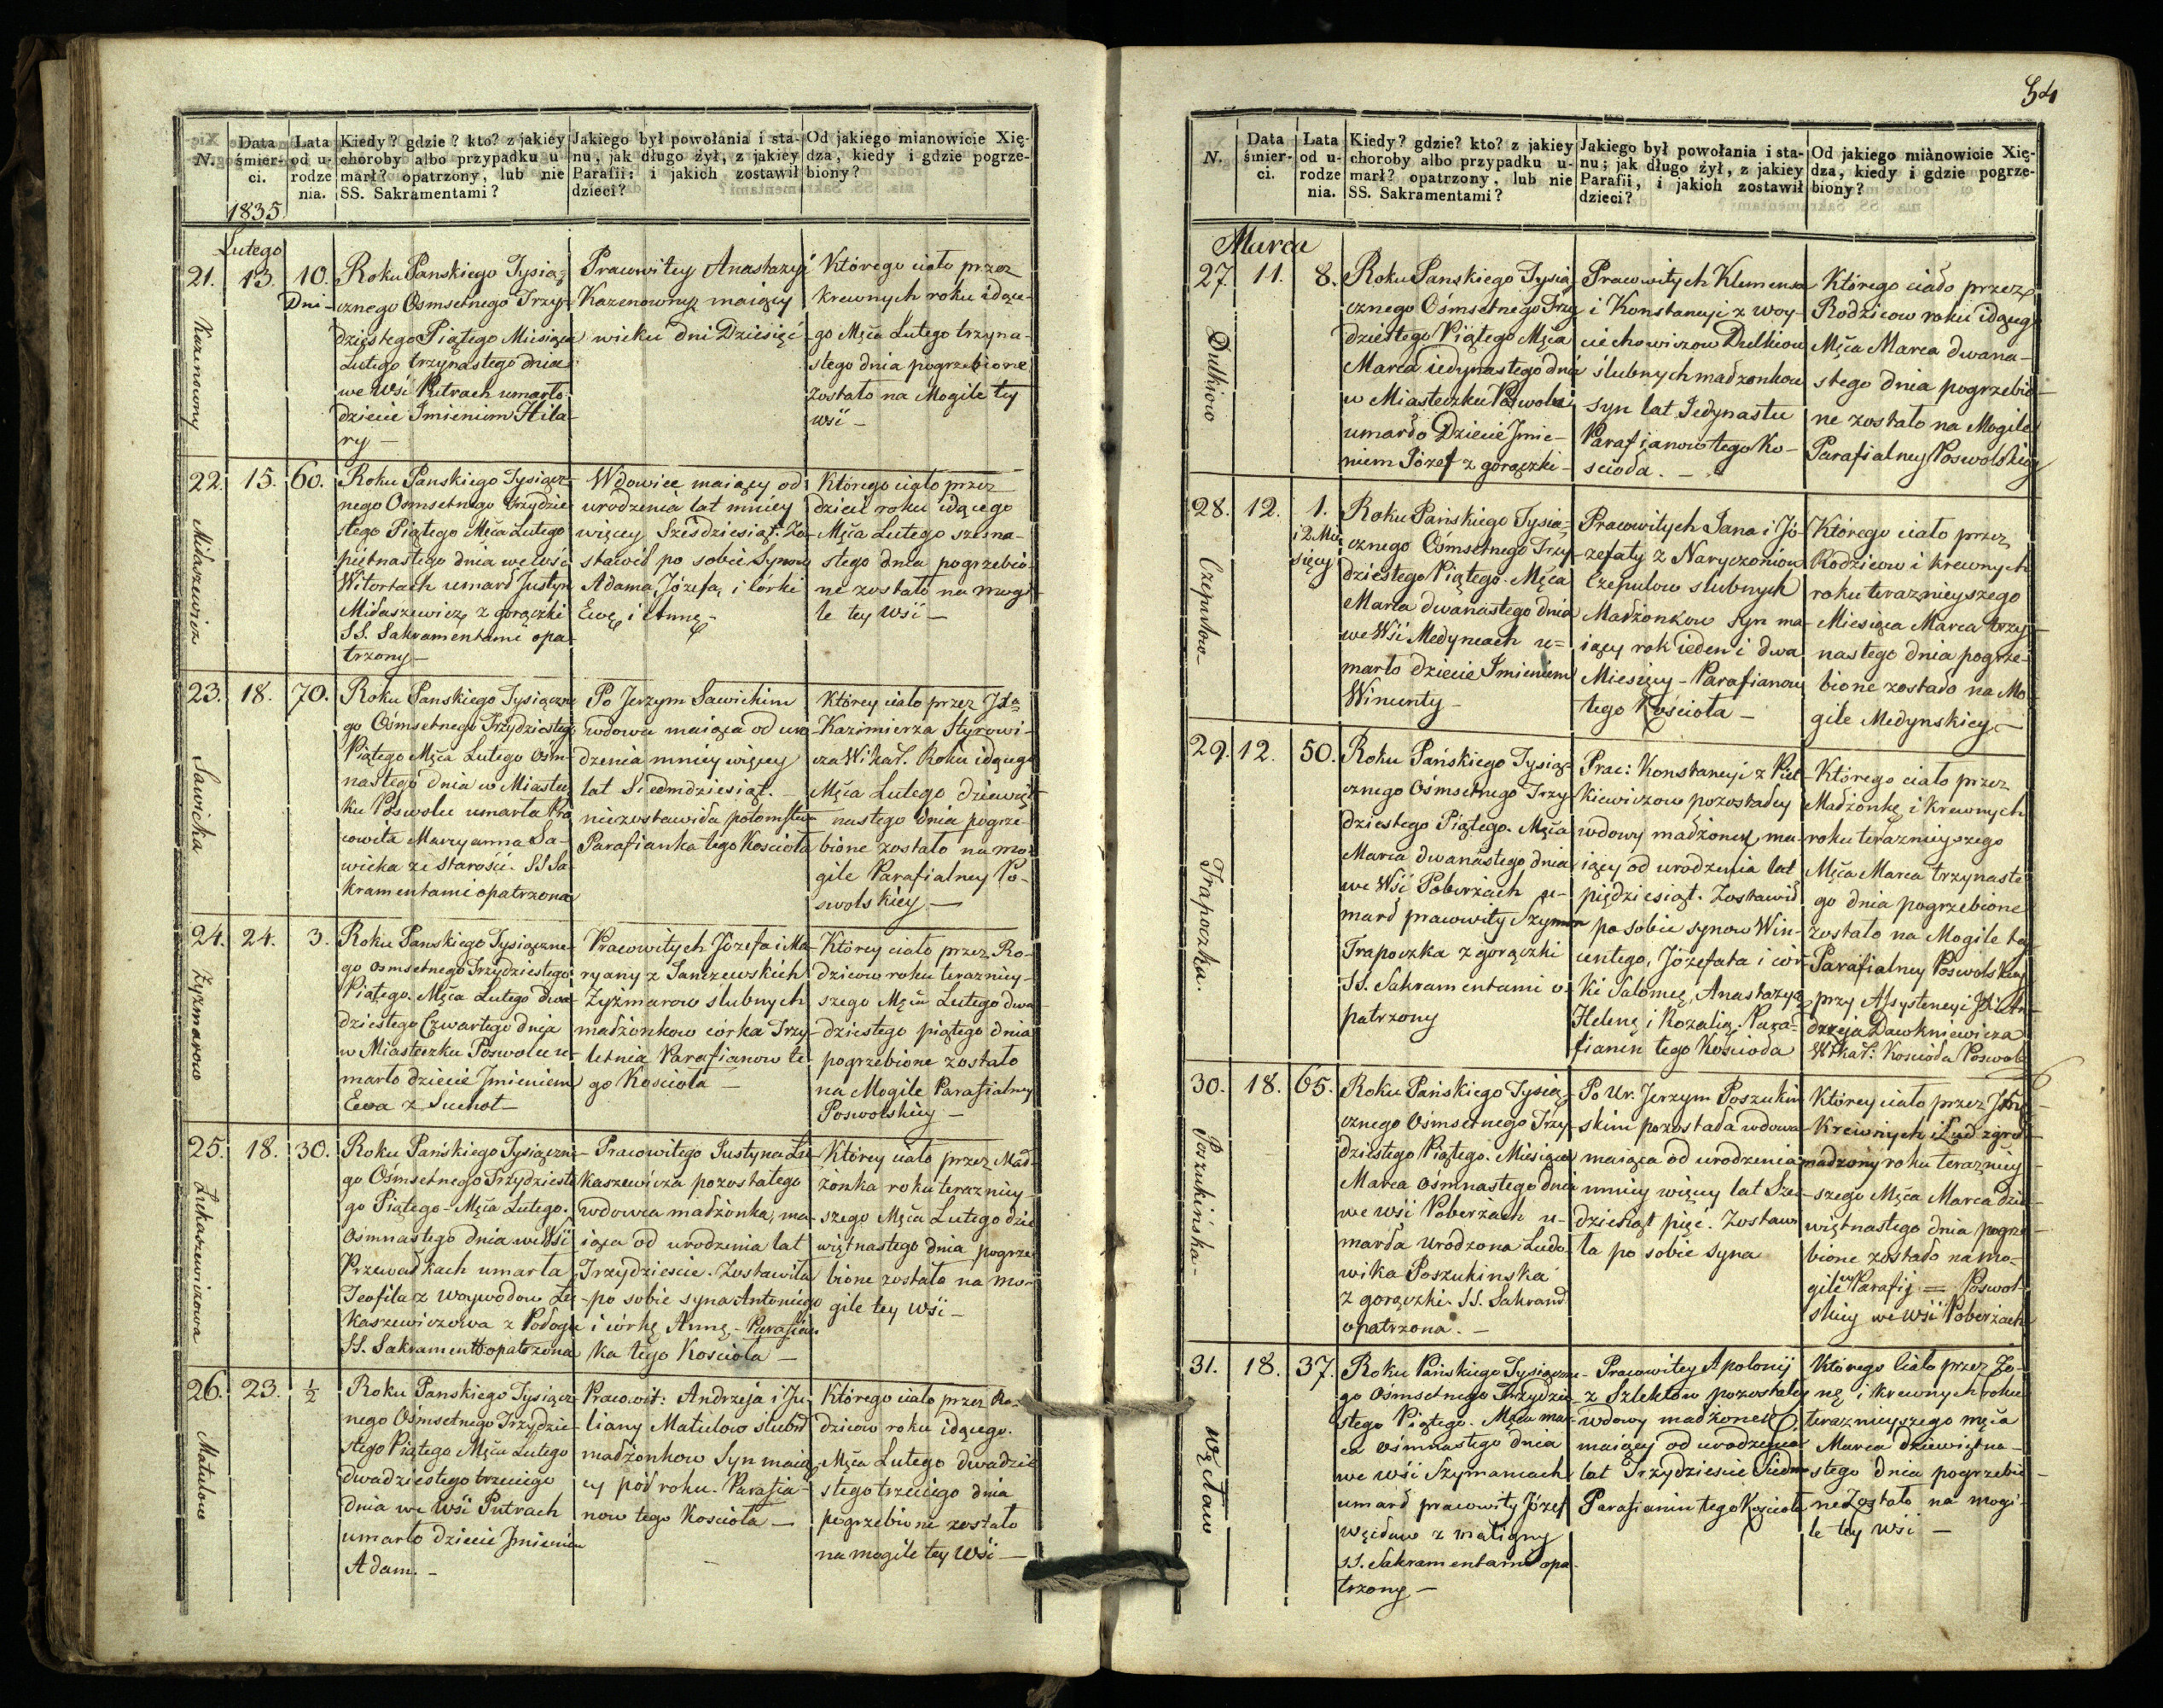 N.
Data śmier-
ci.
Lata
od u-
rodze
nia.
Kiedy? gdzie? kto? z jakiey
choroby albo przypadku u-
marł? opatrzony, lub nie
SS. Sakramentami?
Jakiego był powołania i sta-
nu, jak długo żył, z jakiey
Parafii; i jakich zostawił
dzieci?
Od jakiego mianowicie Xię-
dza, kiedy i gdzie pogrze-
biony?
1835
Lutego
21.
Kazenowny
13.
10.
Dni
Roku Panskiego Tysią-
cznego Osmsetnego Trzy-
dziestego Piątego Miesiąca
Lutego trzynastego dnia
we Wsi Putrach umarło
dziecie Imieniem Hila-
ry —
Pracowitey Anastazyi
Kazenowny maiący
wieku dni Dziesięć
Którego ciało przez
krewnych roku idące-
go Męca Lutego trzyna-
stego dnia pogrzebione
zostało na Mogile tey
wsi —
22.
Miłaszewicz
15.
60.
Roku Panskiego Tysiącz-
nego Osmsetnego Trzydzie
stego Piątego Męca Lutego
piętnastego dnia we wsi
Witortach umarł Justyn
Miłaszewicz z gorączki
SS. Sakramentami opa-
trzony —
Wdowiec maiący od
urodzenia lat mniey
więcey Sześdziesiąt. Zo-
stawił po sobie Synow
Adama, Józefa, i córki
Ewę i Annę —
Którego ciało przez
dzieci roku idącego
Męca Lutego szesna-
stego dnia pogrzebio-
ne zostało na mogi-
le tey wsi —
23.
Sawicka
18.
70.
Roku Panskiego Tysiączne
go Osmsetnego Trzydziestego
Piątego Męca Lutego Osm-
nastego dnia w Miastecz
ku Poswolu umarła Pra
cowita Maryanna Sa-
wicka ze starości. SS Sa-
kramentami opatrzona
Po Jerzym Sawickim
wdowa maiąca od uro-
dzenia mniey więcey
lat Siedmdziesiąt. —
niezostawiła potomstwa
Parafianka tego Kościoła
Którey ciało przez
Kazimierza Styrowi-
cza Wikar. Roku idącego
Męca Lutego dziewięt-
nastego dnia pogrze-
bione zostało na mo-
gile Parafialney Po-
swolskiey. —
24.
Zyżmarow
24.
3.
Roku Panskiego Tysiączne-
go osmsetnego Trzydziestego
Piątego. Męca Lutego dwa-
dziestego Czwartego dnia
w Miasteczku Poswolu u-
marło dziecie Imieniem
Ewa z Suchot —
Pracowitych Józefa i Ma-
ryany z Janczewskich
Zyżmarow slubnych
małżonkow córka Trzy-
letnia Parafianow te-
go Kościoła —
Którey ciało przez Ro-
dzicow roku terazniey-
szego Męca Lutego dwa-
dziestego piątego dnia
pogrzebione zostało
na Mogile Parafialney
Poswolskiey —
25.
Łukaszewiczowa
18.
30.
Roku Pańskiego Tysiączne-
go Ośmsetnego Trzydzieste
go Piątego - Męca Lutego.
Osmnastego dnia we Wsi
Przewałkach umarła
Teofila z Woywodow Łu-
kaszewiczowa z Połogu
SS. Sakramentt opatrzona
Pracowitego Justyna Łu-
kaszewicza pozostałego
wdowca małżonka, ma-
iąca od urodzenia lat
Trzydziescie. Zostawiła
po sobie syna Antoniego
i córkę Annę, - Parafian
ka tego Kościoła —
Którey ciało przez Mał-
żonka roku teraznicy-
szego Męca Lutego dzie
więtnastego dnia pogrze-
bione zostało na mo-
gile tey wsi —
26.
Matulow
23.
½
Roku Panskiego Tysiącz-
nego Ośmsetnego Trzydzie-
stego Piątego Męca Lutego
dwadziestego trzeciego
dnia we Wsi Putrach
umarło dziecie Imieniem
Adam. —
Pracowit: Andrzeja i Ju-
liany Matulow slubn
małżonkow Syn maią
cy pół roku. Parafia-
now tego Kościoła —
Którego ciało przez Ro-
dzicow roku idącego.
Męca Lutego dwadzie
stego trzeciego dnia
pogrzebione zostało
na mogile tey Wsi —
54
N.
Data
śmier-
ci.
Lata
od u-
rodze
nia.
Kiedy? gdzie? kto? z jakiey
choroby albo przypadku u-
marł? opatrzony, lub nie
SS. Sakramentami?
Jakiego był powołania i sta-
nu; jak długo żył, z jakiey
Parafii, i jakich zostawił
dzieci?
Od jakiego miànowicie Xię-
dza, kiedy i gdzie pogrze-
biony?
Marca
27.
Dulkiow
11.
8.
Roku Panskiego Tysią-
cznego Ośmsetnego Trzy
dziestego Piątego Męca
Marca iedynastego dnia
w Miasteczku Poswolu
umarło Dziecie Imie-
niem Józef z gorączki —
Pracowitych Klemensa
i Konstancyi z Woy-
ciechowiczow Dulkiow
ślubnych małzonkow
syn lat Jedynastu
Parafianow tego Ko-
scioła. —
Którego ciało przez
Rodzicow roku idącego
Męca Marca dwana-
stego dnia pogrzebio-
ne zostało na Mogile
Parafialney Poswolskiey
28.
Czepułow
12.
1.
i 2 Mie
sięcy
Roku Pańskiego Tysią-
cznego Ośmsetnego Trzy-
dziestego Piątego. Męca
Marca dwanastego dnia
we Wsi Medyneach u-
marło dziecie Imieniem
Wincenty —
Pracowitych Jana i Jó-
zefaty z Naryczoniow
Czepulow slubnych
Małżonkow syn ma-
iący rok ieden i dwa
Miesięcy — Parafianow
tego Kościoła —
Którego ciało przez
Rodzicow i krewnych
roku teraznieyszego
Miesiąca Marca trzy-
nastego dnia pogrze-
bione zostało na Mo-
gile Medynskiey. —
29.
Trapoczka.
12.
50.
Roku Pańskiego Tysią-
cznego Ośmsetnego Trzy
dziestego Piątego. Męca
Marca dwanastego dnia
we Wsi Poberżach u-
marł pracowity Szymon
Trapoczka z gorączki
SS. Sakramentami o-
patrzony
Prac: Konstancyi z Piet
kiewiczow pozostałey
wdowy małżonek, ma-
iący od urodzenia lat
pięćdziesiąt. Zostawił
po sobie synow Win-
centego, Józefata i cór-
ki Salomeę, Anastazyą
Helenę i Rozalią. Para-
fianin tego Kościoła
Którego ciało przez
Małżonkę i krewnych
roku teraznieyszego
Męca Marca trzynaste
go dnia pogrzebione
zostało na Mogile tey
Parafialney Poswolskiey
przy Assystencyi
drzeja Dawkniewicza
Wikar: Kościoła Poswol
30.
Poszukińska
18.
65.
Roku Pańskiego Tysią-
cznego Ośmsetnego Trzy-
dziestego Piątego. Miesiąca
Marca ośmnastego dnia
we wsi Poberżach u-
marła Urodzona Ludo-
wika Poszukinska
z gorączki. SS. Sakram
opatrzona. —
Po Ur. Jerzym Poszukin
skim pozostała wdowa
maiąca od urodzenia
mniey więcey lat Szes-
dziesiąt pięć. Zostawi
ła po sobie syna
Którey ciało przez
Krewnych i Lud zgro-
madzony roku terazniey-
szego Męca Marca dzie-
więtnastego dnia pogrze-
bione zostało na mo-
gile w Parafij = Poswol-
skiey we wsi Poberżach
31.
Węcław
18.
37.
Roku Pańskiego Tysiączne-
go Ośmsetnego Trzydzie-
stego Piątego. Męca mar-
ca ośmnastego dnia
we wsi Szymaniach
umarł pracowity Józef
Węcław z maligny
SS. Sakramentami opa-
trzony —
Pracowitey Apolonij
z Szlektow pozostałey
wdowy małżonek
maiący od urodzenia
lat Trzydziescie Siedm
Parafianin tego Kościoła
Którego Ciało przez Żo-
nę i krewnych roku
teraznieyszego męca
Marca dziewiętna-
stego dnia pogrzebio-
ne Zostało na mogi-
le tey wsi —